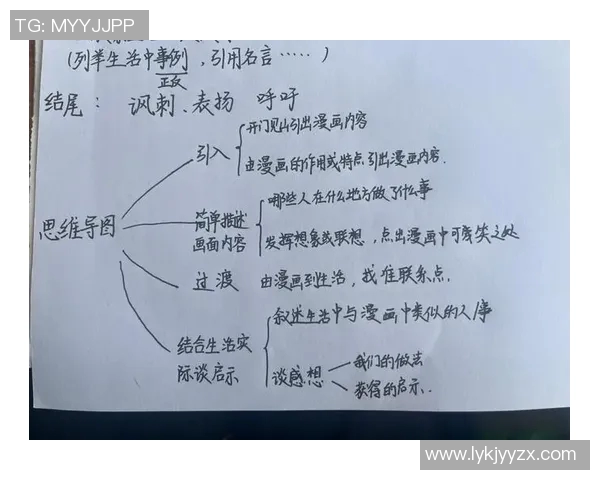 TG: MYYJJPP
(列举生活中事例，引用名言……)
正反
结尾： 讽刺、表扬 呼吁
思维导图
引入
开门见山引出漫画内容
由漫画的作用或特点引出漫画内容.
简单描述
画面内容
哪些人在什么地方做了什么事
发挥想象或联想，点出漫画中可笑之处
过渡 由漫画到生活，找准联系点.
结合生活实
际谈启示
叙述生活中与漫画中类似的人事
谈感想
我们的做法
获得的启示.
www.lykjyyzx.com